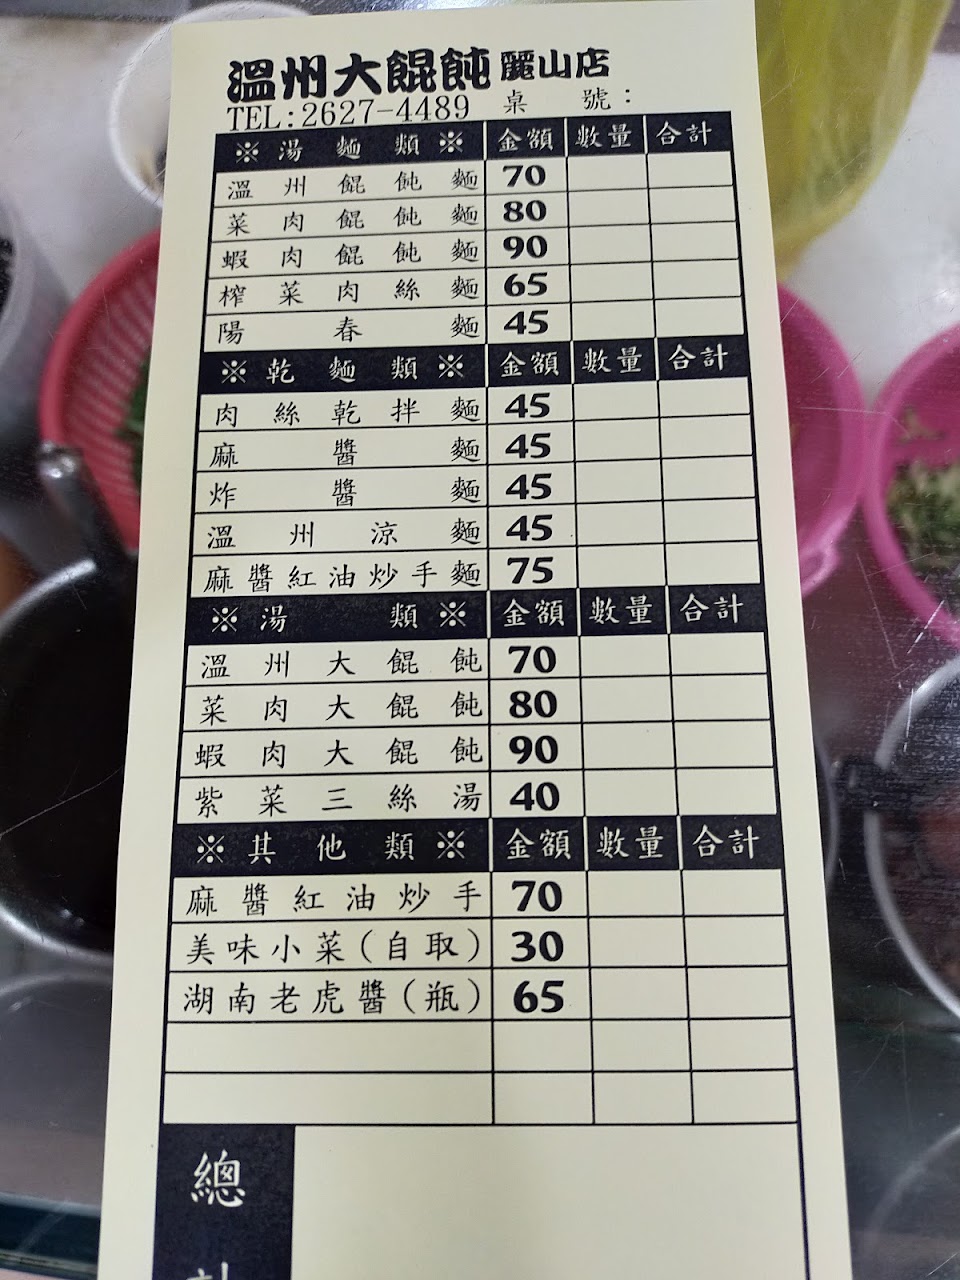 溫州大餛飩 麗山店
TEL:2627-4489 桌 號:
※ 湯 麵 類 ※ 金額 數量 合計
溫州餛飩麵 70
菜肉餛飩麵 80
蝦肉餛飩麵 90
榨菜肉絲麵 65
陽春麵 45
※ 乾 麵 類 ※ 金額 數量 合計
肉絲乾拌麵 45
麻醬麵 45
炸醬麵 45
溫州涼麵 45
麻醬紅油炒手麵 75
※ 湯 類 ※ 金額 數量 合計
溫州大餛飩 70
菜肉大餛飩 80
蝦肉大餛飩 90
紫菜三絲湯 40
※ 其 他 類 ※ 金額 數量 合計
麻醬紅油炒手 70
美味小菜(自取) 30
湖南老虎醬(瓶) 65
總